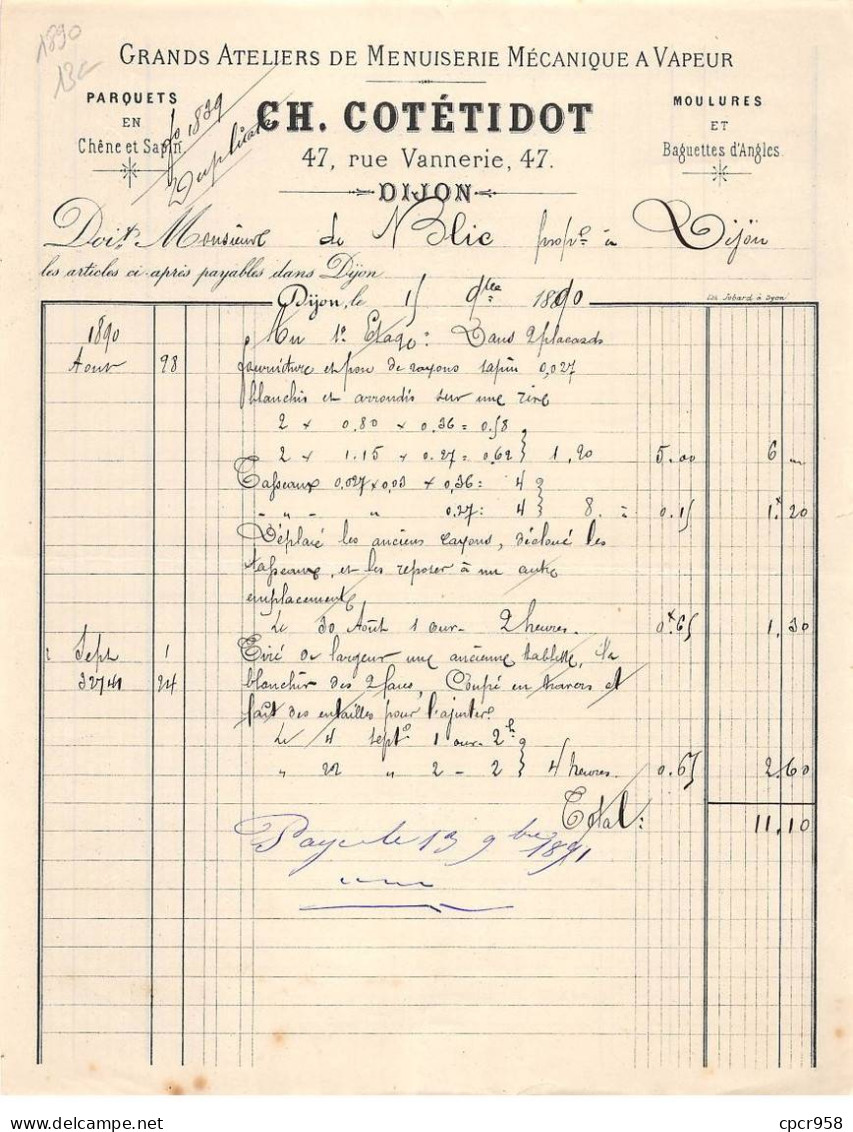 1890
13c
GRANDS ATELIERS DE MENUISERIE MÉCANIQUE A VAPEUR
PARQUETS
EN
Chêne et Sapin.
fo 1839
Duplicata
CH. COTÉTIDOT
47, rue Vannerie, 47.
DIJON
MOULURES
ET
Baguettes d'Angles
Doit Monsieur de Blic propre à Dijon
les articles ci-après payables dans Dijon
Dijon, le 15 9bre 1890
Lith. Jobard à Dijon
1890 Au 1er Etage: Dans 2 placards
Aout 28 fourniture et pose de rayons sapin 0,027
blanchis et arrondis sur une rive
2 x 0.80 x 0.36 = 0.58
2 x 1.15 x 0.27 = 0.62 } 1,20 5.00 6 —
Tasseaux 0,027 x 0,03 x 0,36: 4
" " " " 0.27: 4 } 8. à 0.15 1.20
Déplacé les anciens rayons, décloué les
tasseaux, et les reposer à un autre
emplacement
Le 30 Août 1 our- 2 heures. 0.65 1,30
Sept 1 Tiré de largeur une ancienne tablette, la
32741 24 blanchir des 2 faces, Coupé en travers et
fait des entailles pour l'ajuster
Le 4 septe 1 our- 2h
" 22 " 2 - 2 } 4 heures. 0.65 2.60
Total: 11.10
Payé le 13 9bre 1891
cpcr958